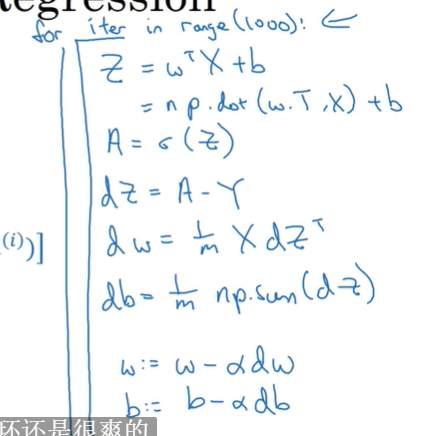 Regression
for iter in range(1000): ←
Z = wᵀX + b
= np.dot(w.T, X) + b
A = σ(Z)
dZ = A - Y
(i))]
dw = 1/m X dZᵀ
db = 1/m np.sum(dZ)
w := w - αdw
b := b - αdb
环还是很爽的